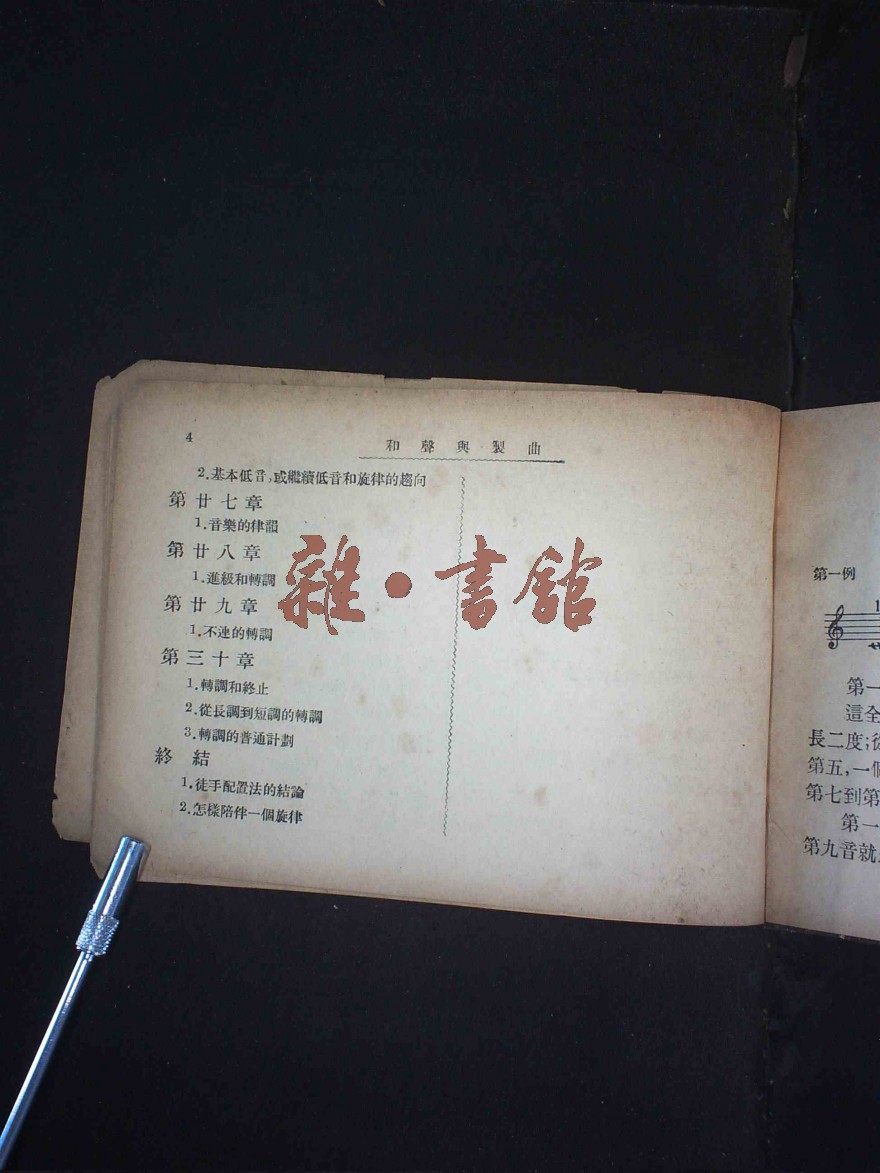 4
和聲與製曲
2.基本低音,或繼續低音和旋律的趨向
第廿七章
1.音樂的律韻
第廿八章
1.進級和轉調
第廿九章
1.不連的轉調
第三十章
1.轉調和終止
2.從長調到短調的轉調
3.轉調的普通計劃
終結
1.徒手配置法的結論
2.怎樣陪伴一個旋律
雜·書館
第一例
1
第一
這全
長二度;從
第五,一個
第七到第
第一
第九音就